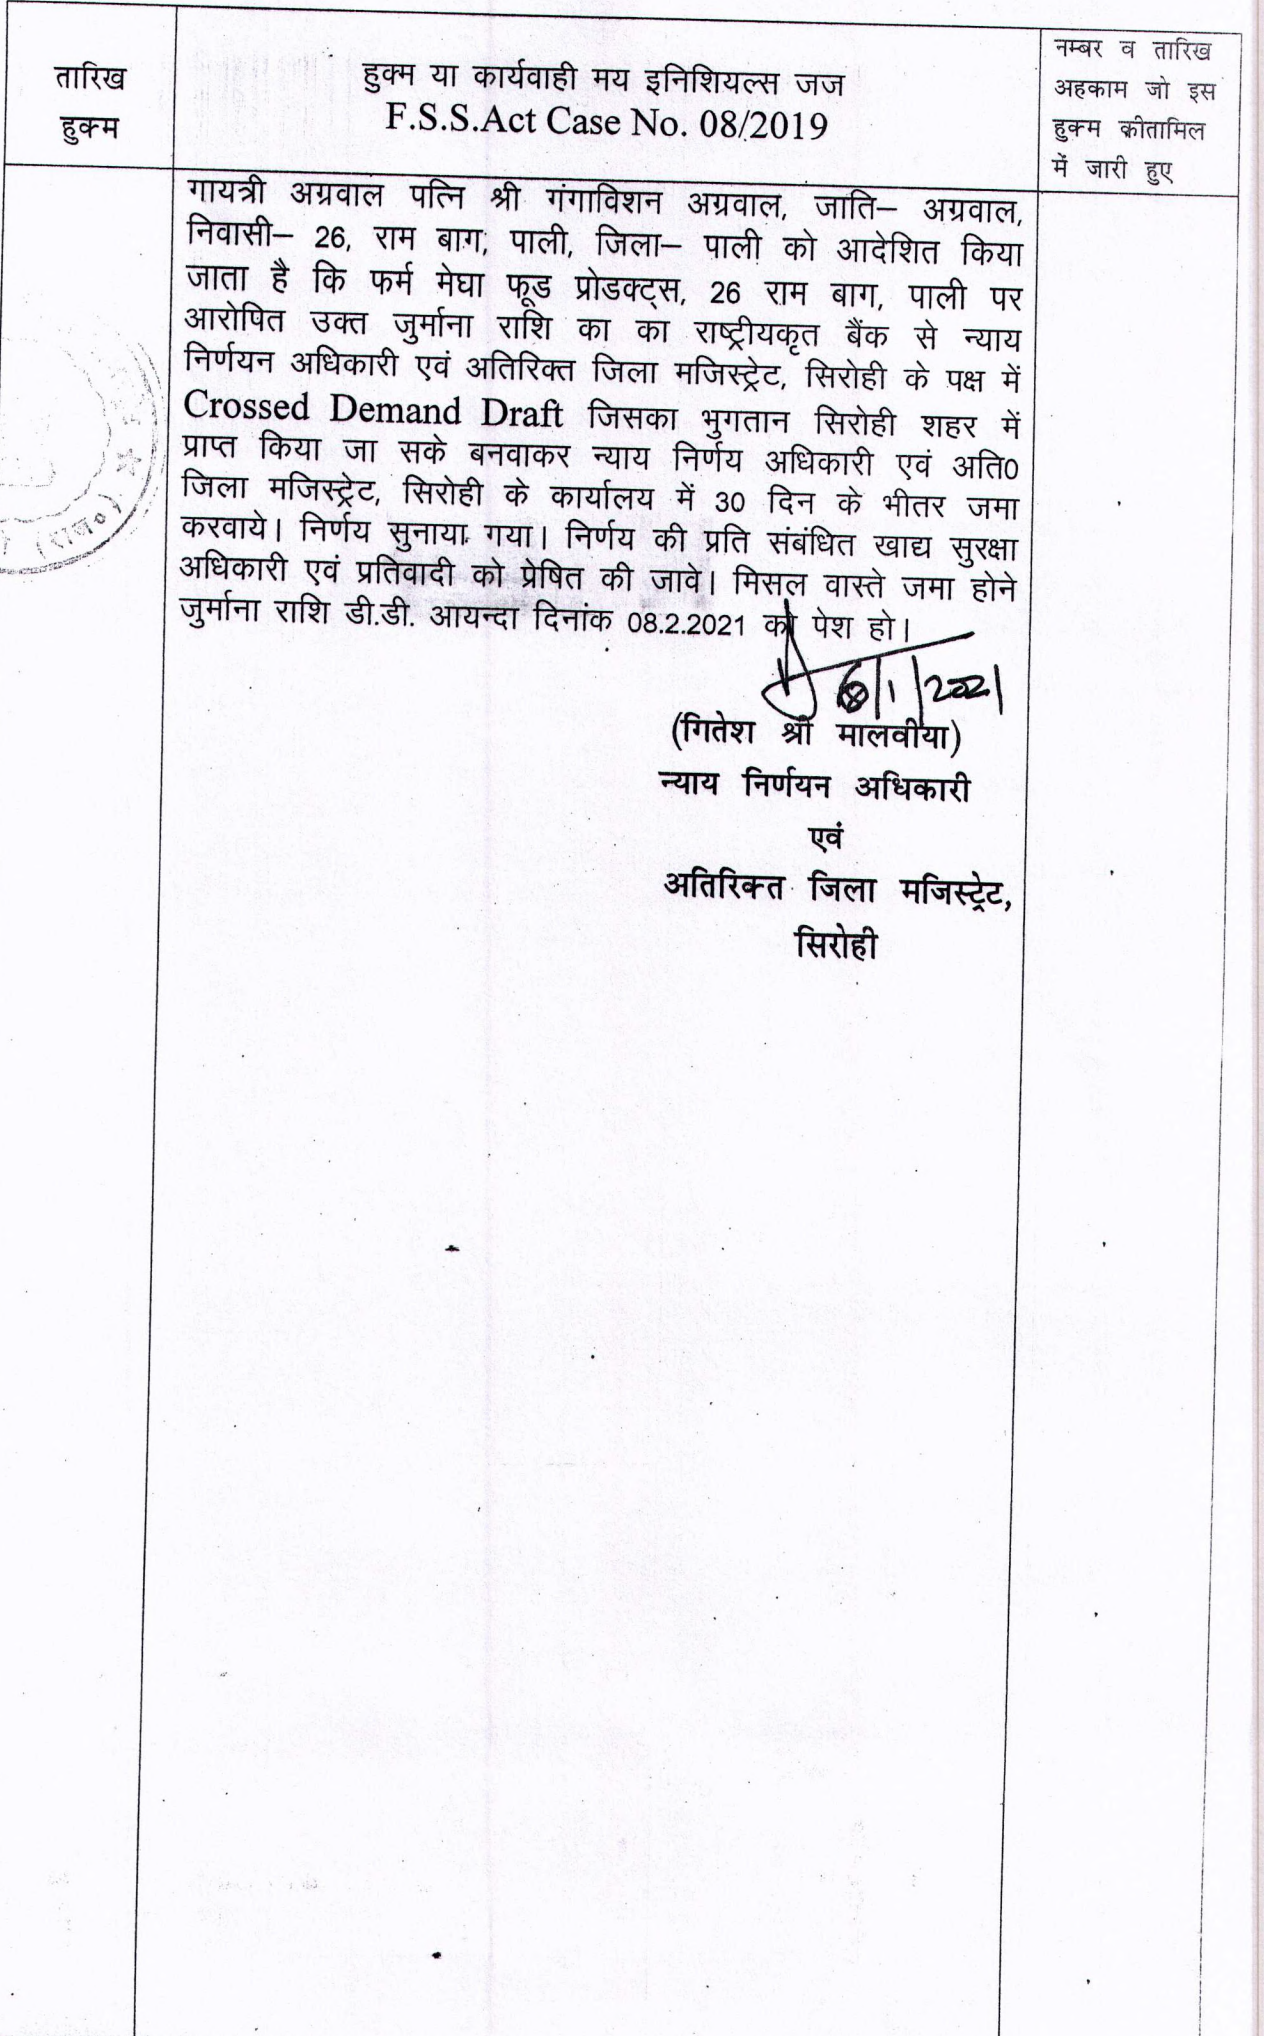 तारिख
हुक्म
हुक्म या कार्यवाही मय इनिशियल्स जज
F.S.S.Act Case No. 08/2019
नम्बर व तारिख
अहकाम जो इस
हुक्म कीतामिल
में जारी हुए
गायत्री अग्रवाल पत्नि श्री गंगाविशन अग्रवाल, जाति– अग्रवाल,
निवासी– 26, राम बाग, पाली, जिला– पाली को आदेशित किया
जाता है कि फर्म मेघा फूड प्रोडक्ट्स, 26 राम बाग, पाली पर
आरोपित उक्त जुर्माना राशि का का राष्ट्रीयकृत बैंक से न्याय
निर्णयन अधिकारी एवं अतिरिक्त जिला मजिस्ट्रेट, सिरोही के पक्ष में
Crossed Demand Draft जिसका भुगतान सिरोही शहर में
प्राप्त किया जा सके बनवाकर न्याय निर्णय अधिकारी एवं अति0
जिला मजिस्ट्रेट, सिरोही के कार्यालय में 30 दिन के भीतर जमा
करवाये। निर्णय सुनाया गया। निर्णय की प्रति संबंधित खाद्य सुरक्षा
अधिकारी एवं प्रतिवादी को प्रेषित की जावे। मिसल वास्ते जमा होने
जुर्माना राशि डी.डी. आयन्दा दिनांक 08.2.2021 को पेश हो।
6/1/2021
(गितेश श्री मालवीया)
न्याय निर्णयन अधिकारी
एवं
अतिरिक्त जिला मजिस्ट्रेट,
सिरोही
(राज०)